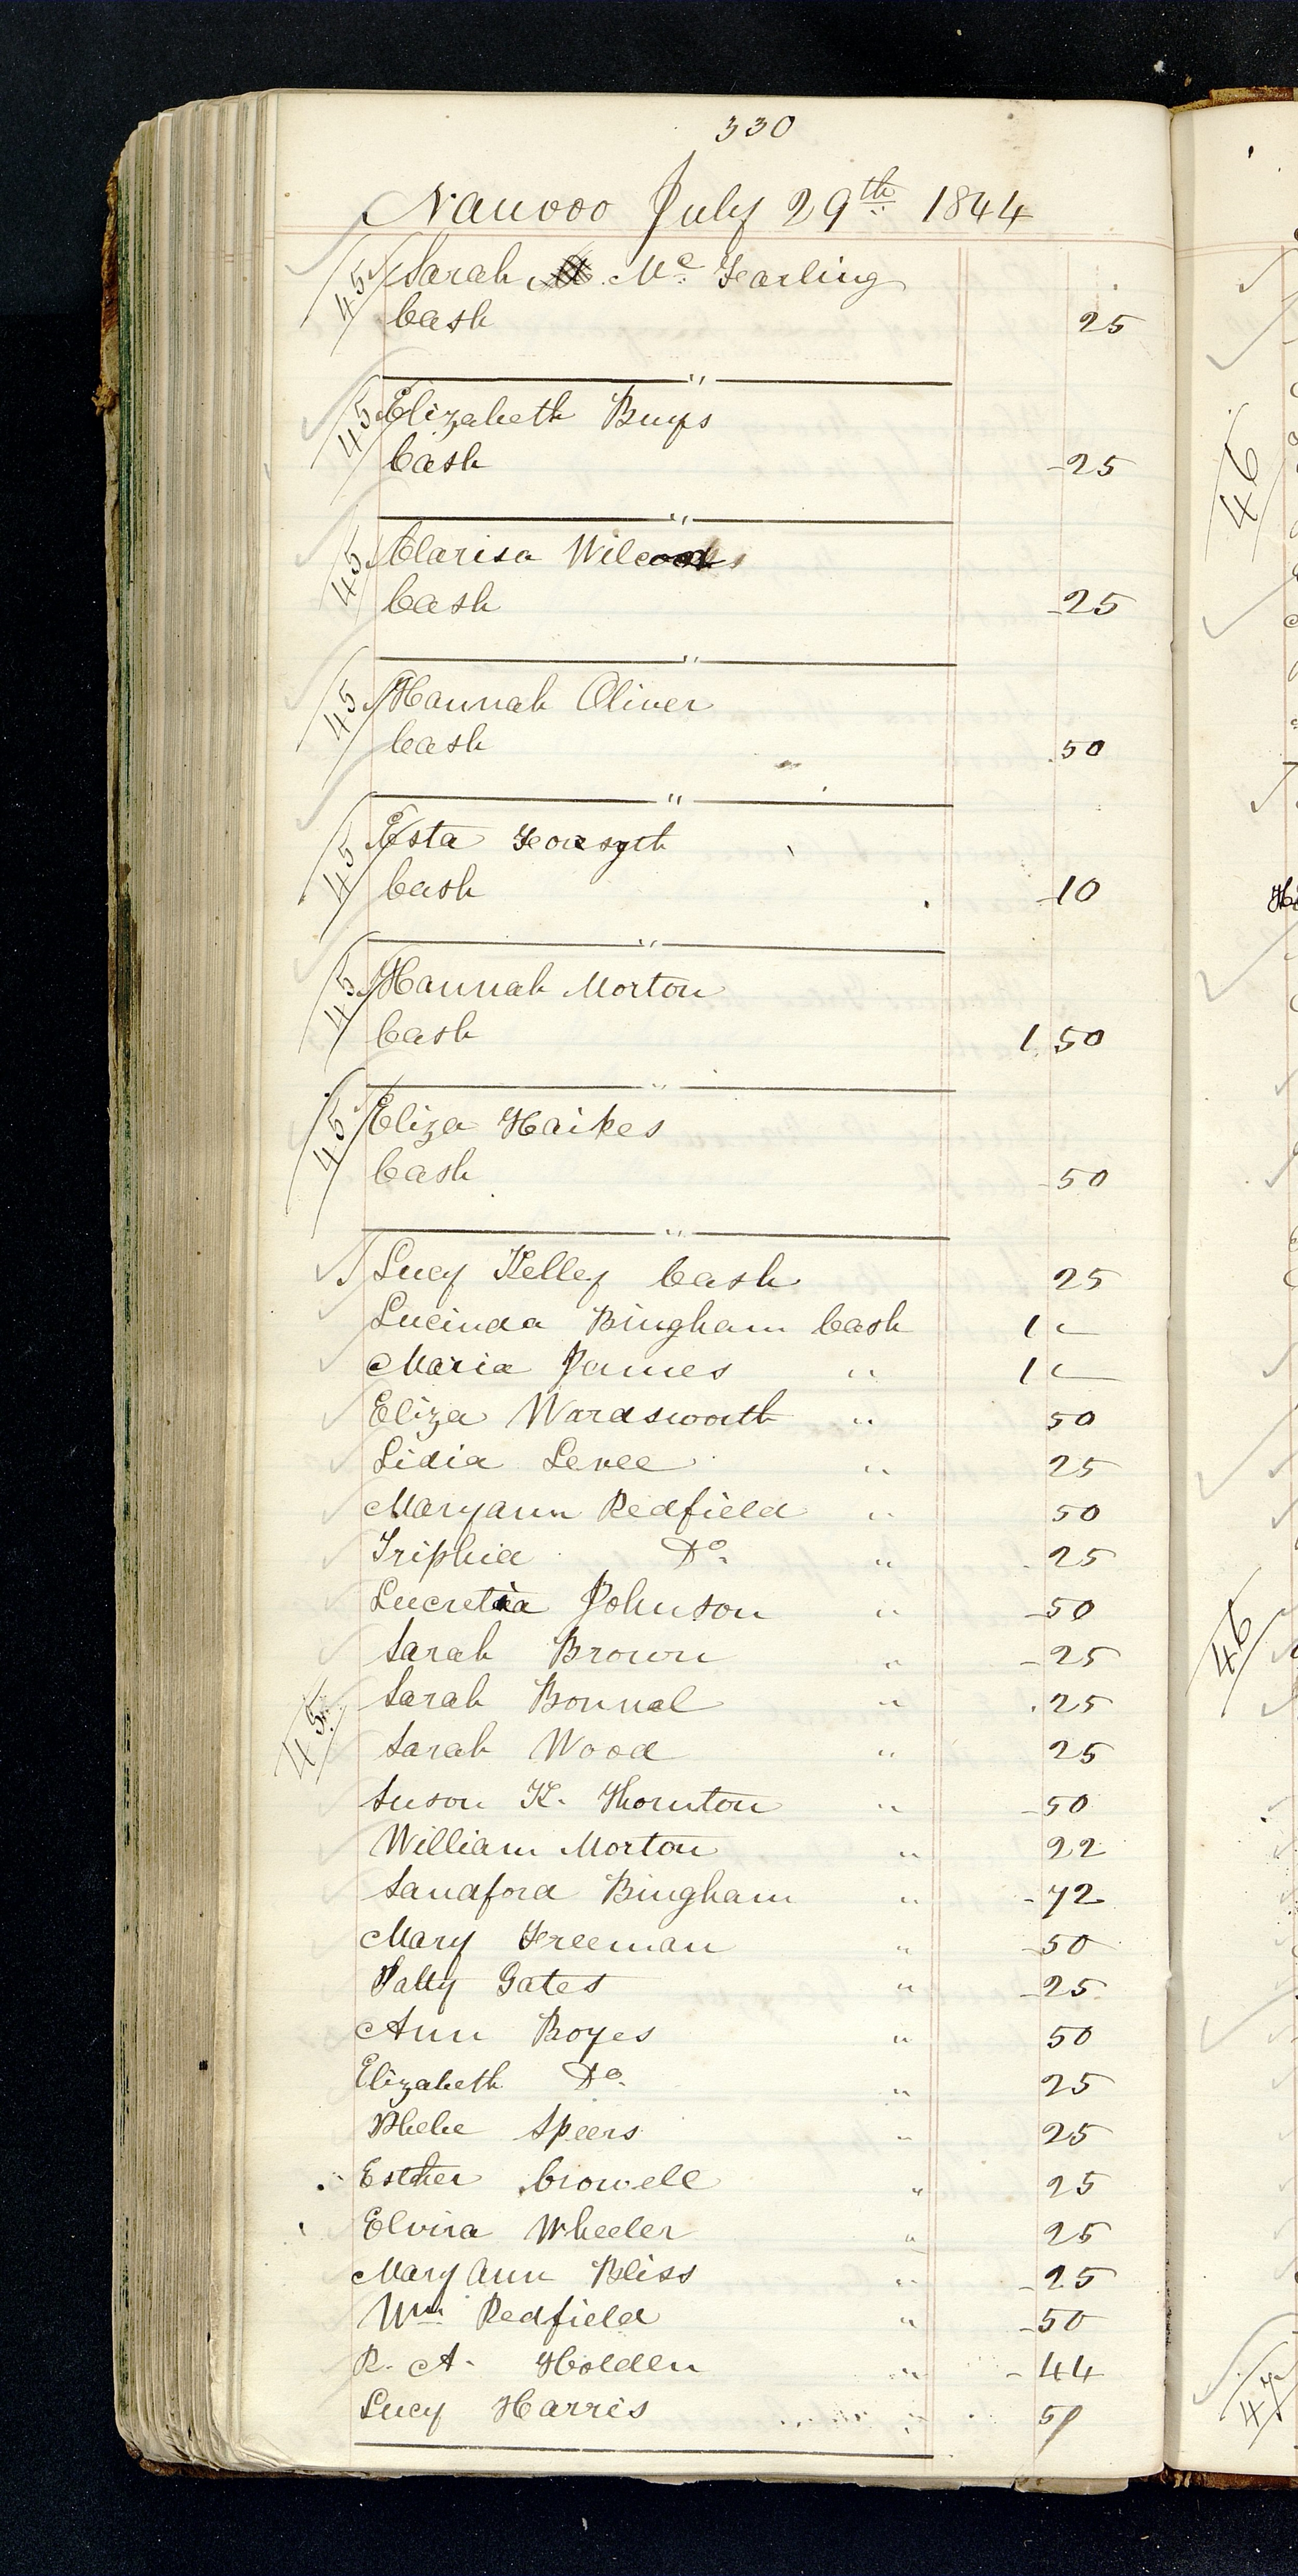 330
Nauvoo July 29th 1844
45 Sarah Mc. Fearling
Cash 25
45 Elizabeth Buys
Cash 25
45 Clarisa
Cash 25
45 Hannah Oliver
Cash 50
45 Esta Forsyth
Cash 10
45 Hannah Morton
Cash 1 50
45 Eliza Haikes
Cash 50
Lucy Kelley Cash 25
Lucinda Bingham Cash 1 —
Maria James " 1 —
Eliza Wardsworth " 50
Lidia Levee " 25
Maryann Redfield " 50
Triphia Do. " 25
Lucretia Johnson " 50
Sarah Brown " 25
45 Sarah Bonnal " 25
Sarah Wood " 25
Suson K. Thornton " 50
William Morton " 22
Sandford Bingham " 72
Mary Freeman " 50
Patty Gates " 25
Ann Boyes " 50
Elizabeth Do. " 25
Phebe Speers " 25
Esther Crowell " 25
Elvira Wheeler " 25
Mary Ann Bliss " 25
Wm Redfield " 50
R. A. Holden " 44
Lucy Harris "
46
46
47